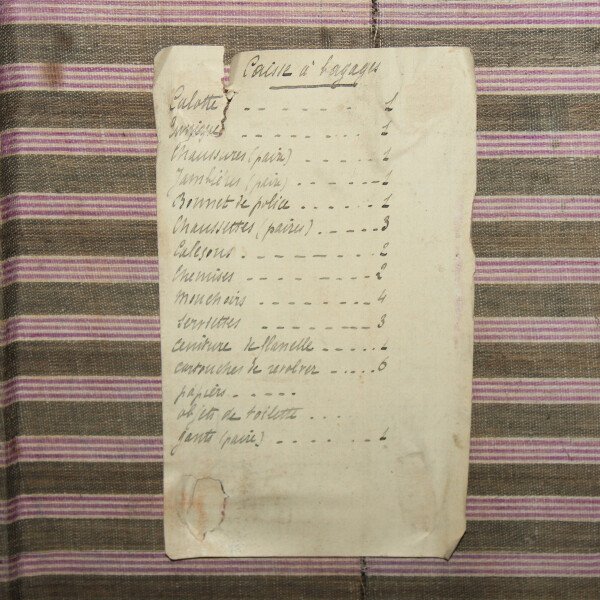 Caisse à bagages
Culotte - - - - - - - 1
- - - - - - - 1
Chaussures (paire) - - - - - 1
Jambières (paire) - - - - - - 1
Bonnet de police - - - - - - 1
Chaussettes (paires) - - - - - 3
Caleçons - - - - - - - 2
Chemises - - - - - - - 2
Mouchoirs - - - - - - - 4
Serviettes - - - - - - - 3
Ceinture de flanelle - - - - - 1
Cartouches de revolver - - - - 6
papiers - - - - -
objets de toilette - - - -
gants (paire) - - - - - - - 1